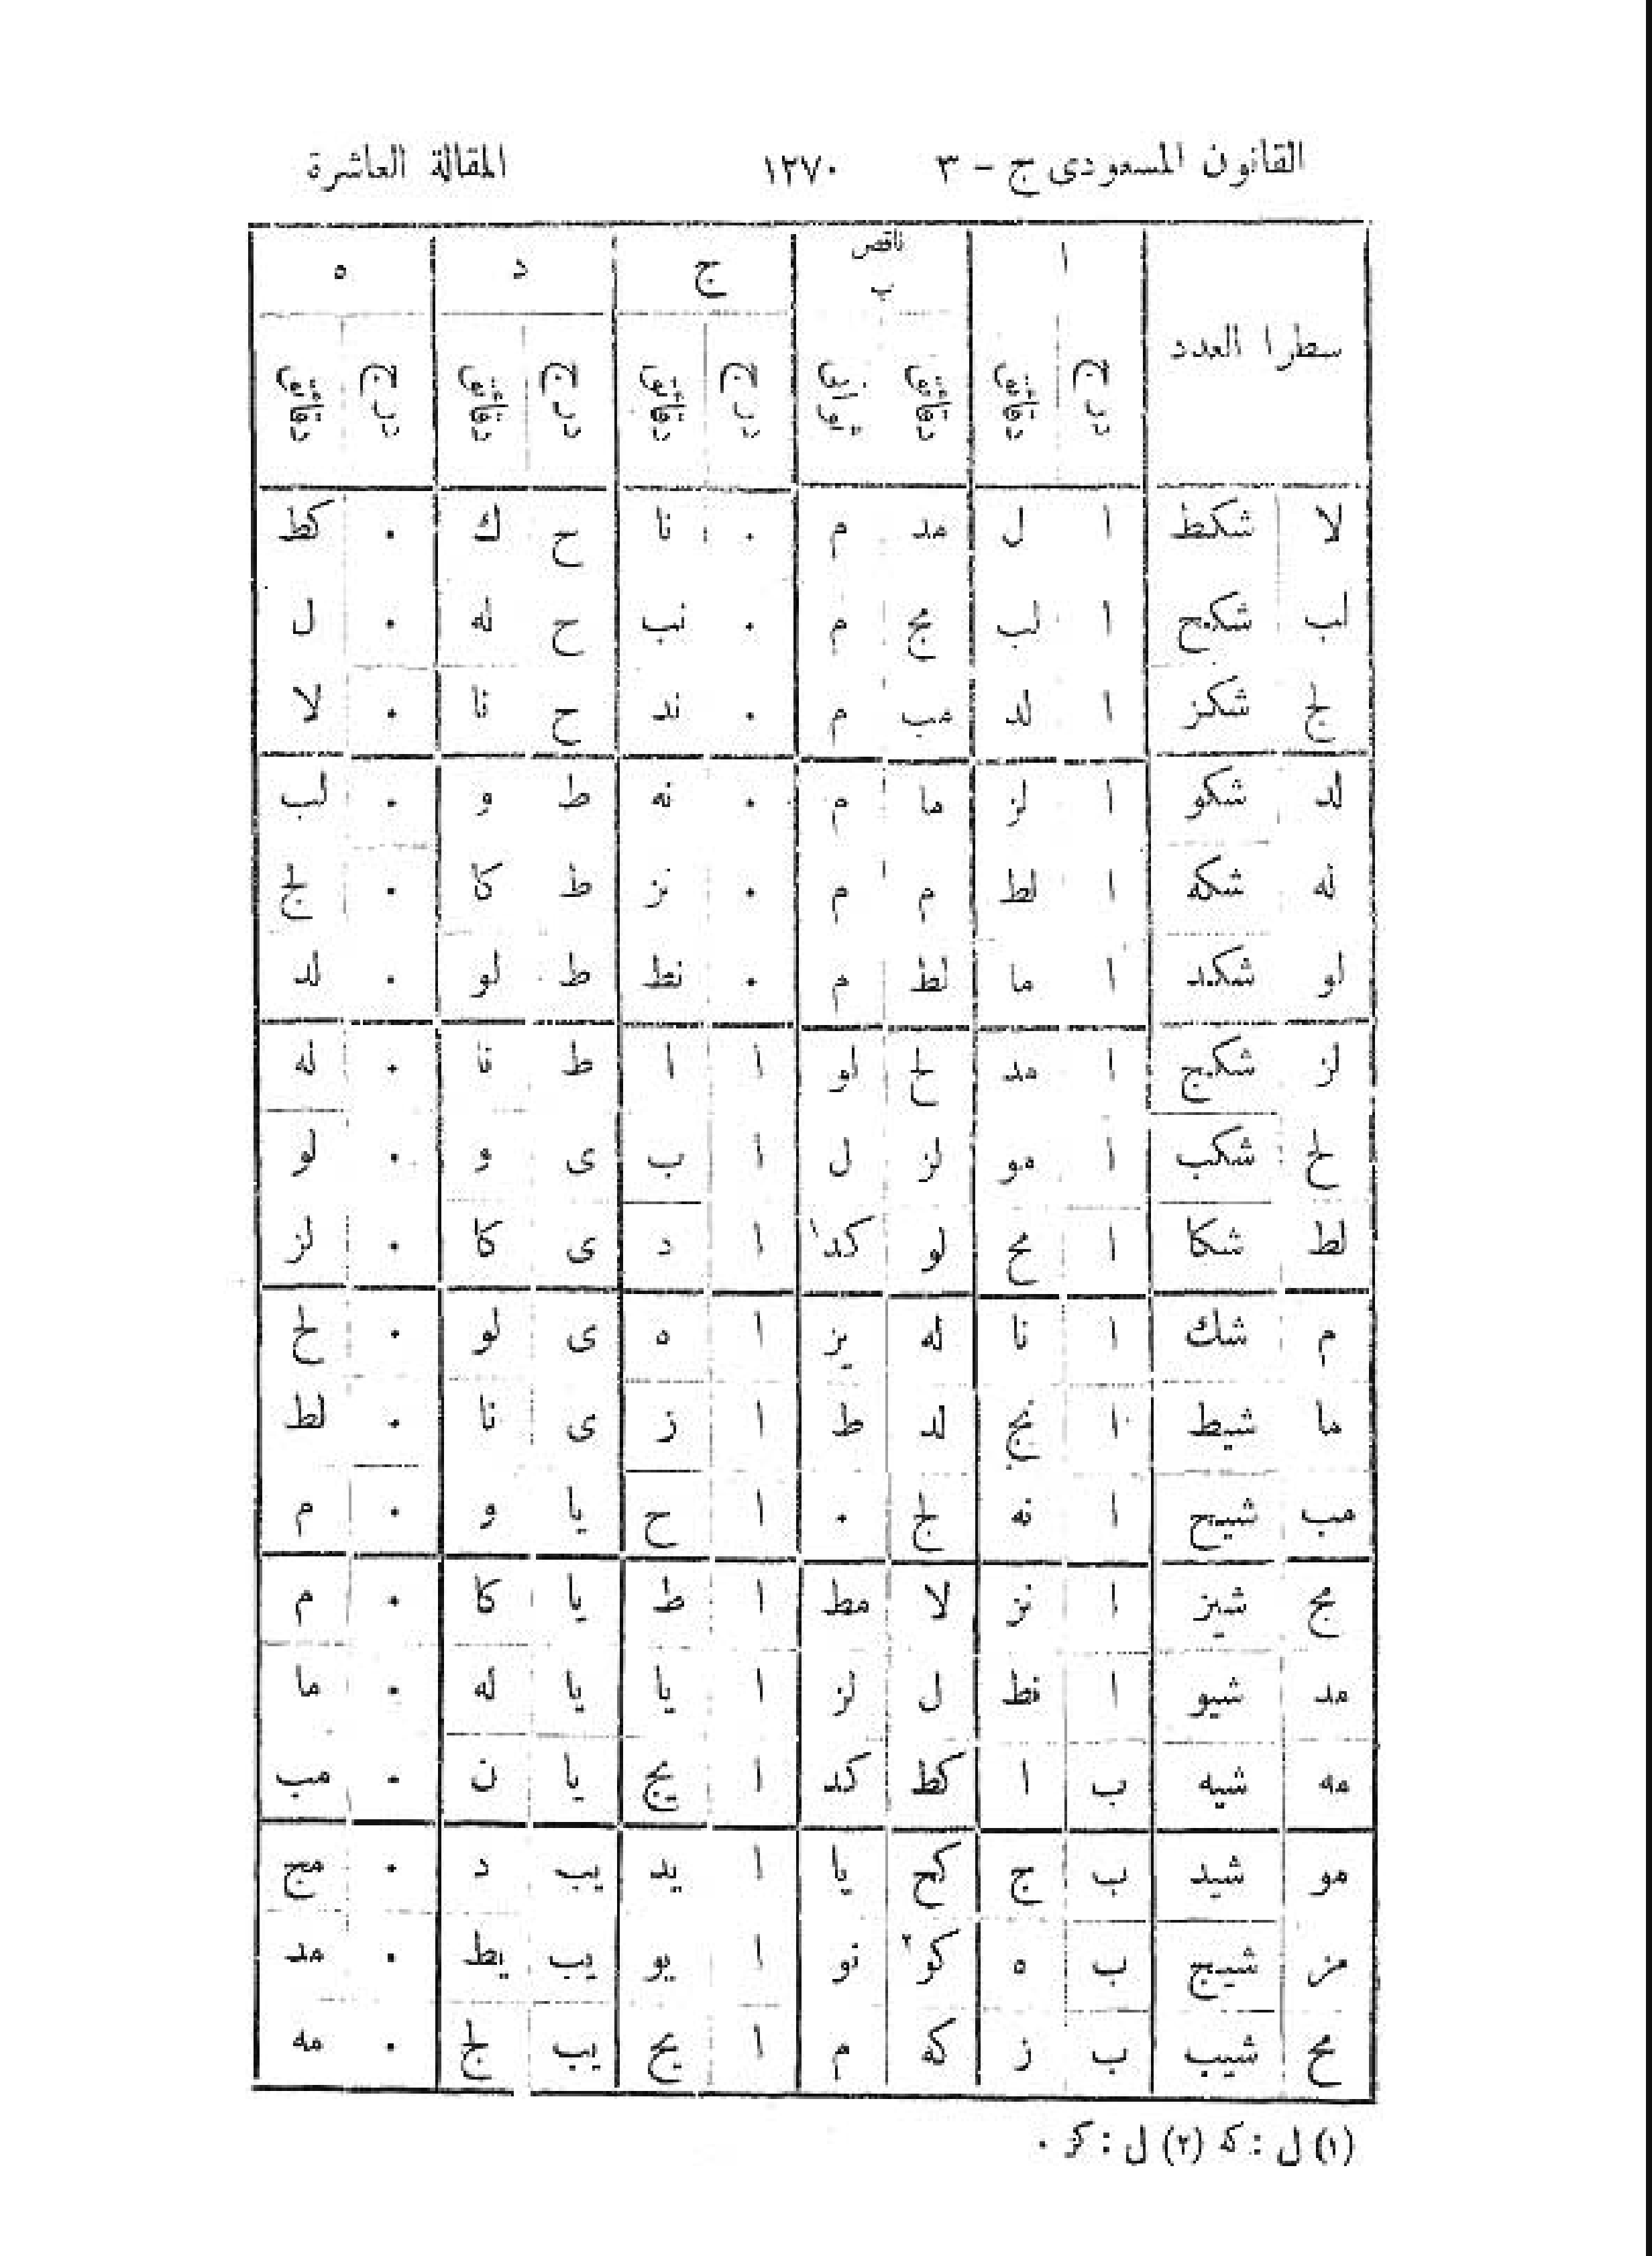 القانون المسعودى ج – ٣ ١٢٧٠ المقالة العاشرة
سطرا العدد ا ناقص ب ج د ه
درج دقائق دقائق ثوانى درج دقائق درج دقائق درج دقائق
لا شكط ا ل مد م ٠ نا ح ك ٠ كط
لب شكح ا لب مج م ٠ نب ح له ٠ ل
لج شكز ا لد مب م ٠ ند ح نا ٠ لا
لد شكو ا لز ما م ٠ نه ط و ٠ لب
له شكه ا لط م م ٠ نز ط كا ٠ لج
لو شكد ا ما لط م ٠ نط ط لو ٠ لد
لز شكج ا مد لح لو ا ا ط نا ٠ له
لح شكب ا مو لز ل ا ب ى و ٠ لو
لط شكا ا مح لو كد١ ا د ى كا ٠ لز
م شك ا نا له يز ا ه ى لو ٠ لح
ما شيط ا نج لد ط ا ز ى نا ٠ لط
مب شيح ا نه لج ٠ ا ح يا و ٠ م
مج شيز ا نز لا مط ا ط يا كا ٠ م
مد شيو ا نط ل لز ا يا يا له ٠ ما
مه شيه ب ا كط كد ا يج يا ن ٠ مب
مو شيد ب ج كح يا ا يد يب د ٠ مج
مز شيج ب ه كو٢ نو ا يو يب يط ٠ مد
مح شيب ب ز كه م ا يح يب لج ٠ مه
(١) ل : كه (٢) ل : كز ٠